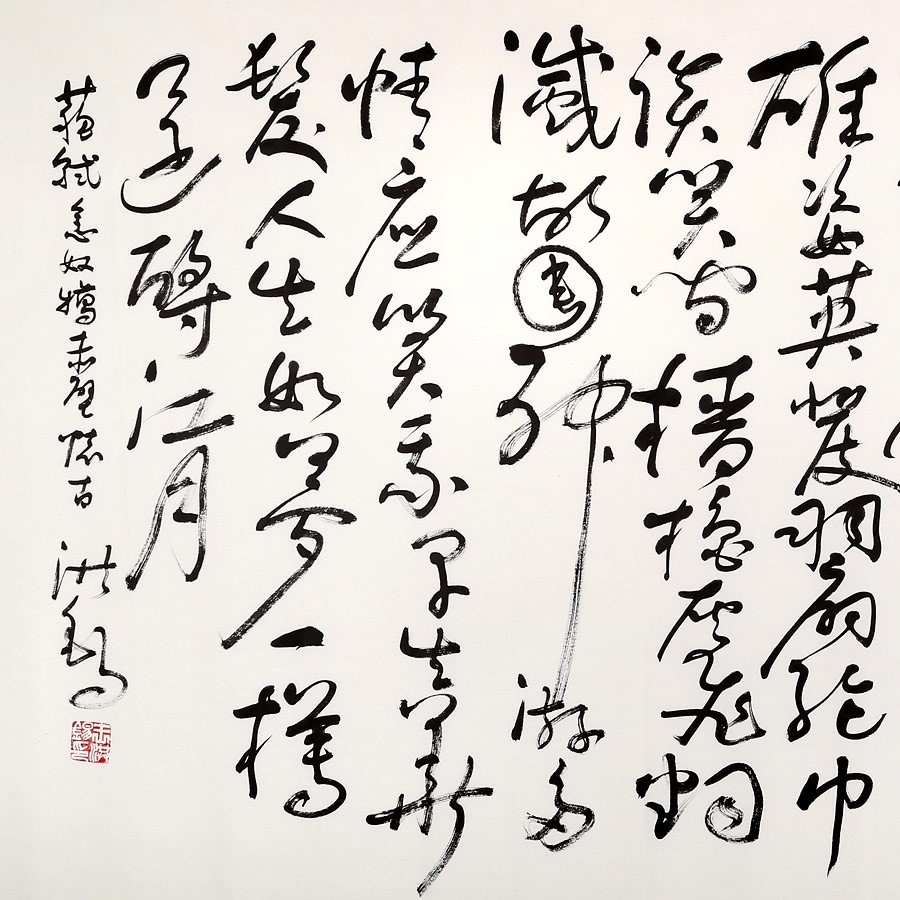 雄姿英發羽扇綸巾
談笑間檣櫓灰飛烟
滅故國神游多
情應笑我早生華
髮人生如夢一樽
還酹江月
蘇軾念奴嬌赤壁懷古 洪錫
王洪錫印